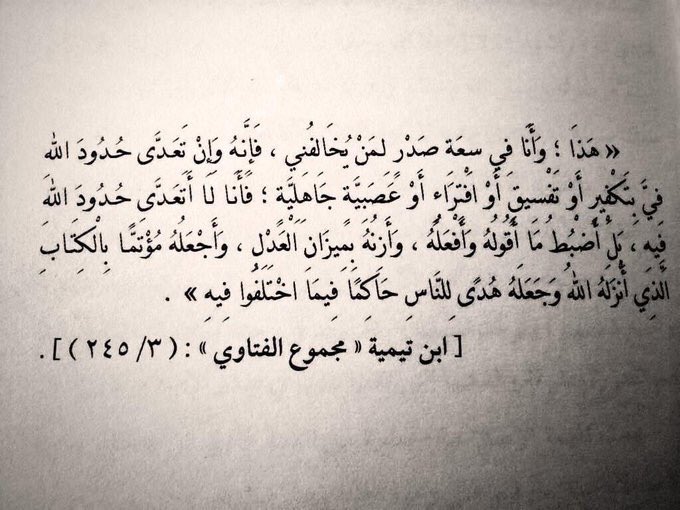 « هَذَا ؛ وَأَنَا في سعَة صَدْر لمَنْ يُخَالفُني ، فَإِنَّهُ وَإِنْ تَعَدَّى حُدُودَ الله
فيَّ بتَكْفير أَوْ تَفْسيق أَوْ افْترَاء أَوْ عَصَبيَّة جَاهليَّة ؛ فَأَنَا لَا أَتَعَدَّى حُدُودَ اللهَ
فيه ، بَلْ أَضْبُطُ مَا أَقُولُهُ وَأَفْعَلُهُ ، وَأَزنُهُ بميزَان الْعَدْل ، وَأَجْعَلُهُ مُؤْتَمًّا بالْكتَاب
الَّذي أَنْزَلَهُ اللهُ وَجَعَلَهُ هُدًى لِلنَّاسِ حَاكمًا فيمَا اخْتَلَفُوا فيه » .
[ ابن تيمية « مجموع الفتاوي » : ( ٣/ ٢٤٥ ) ] .